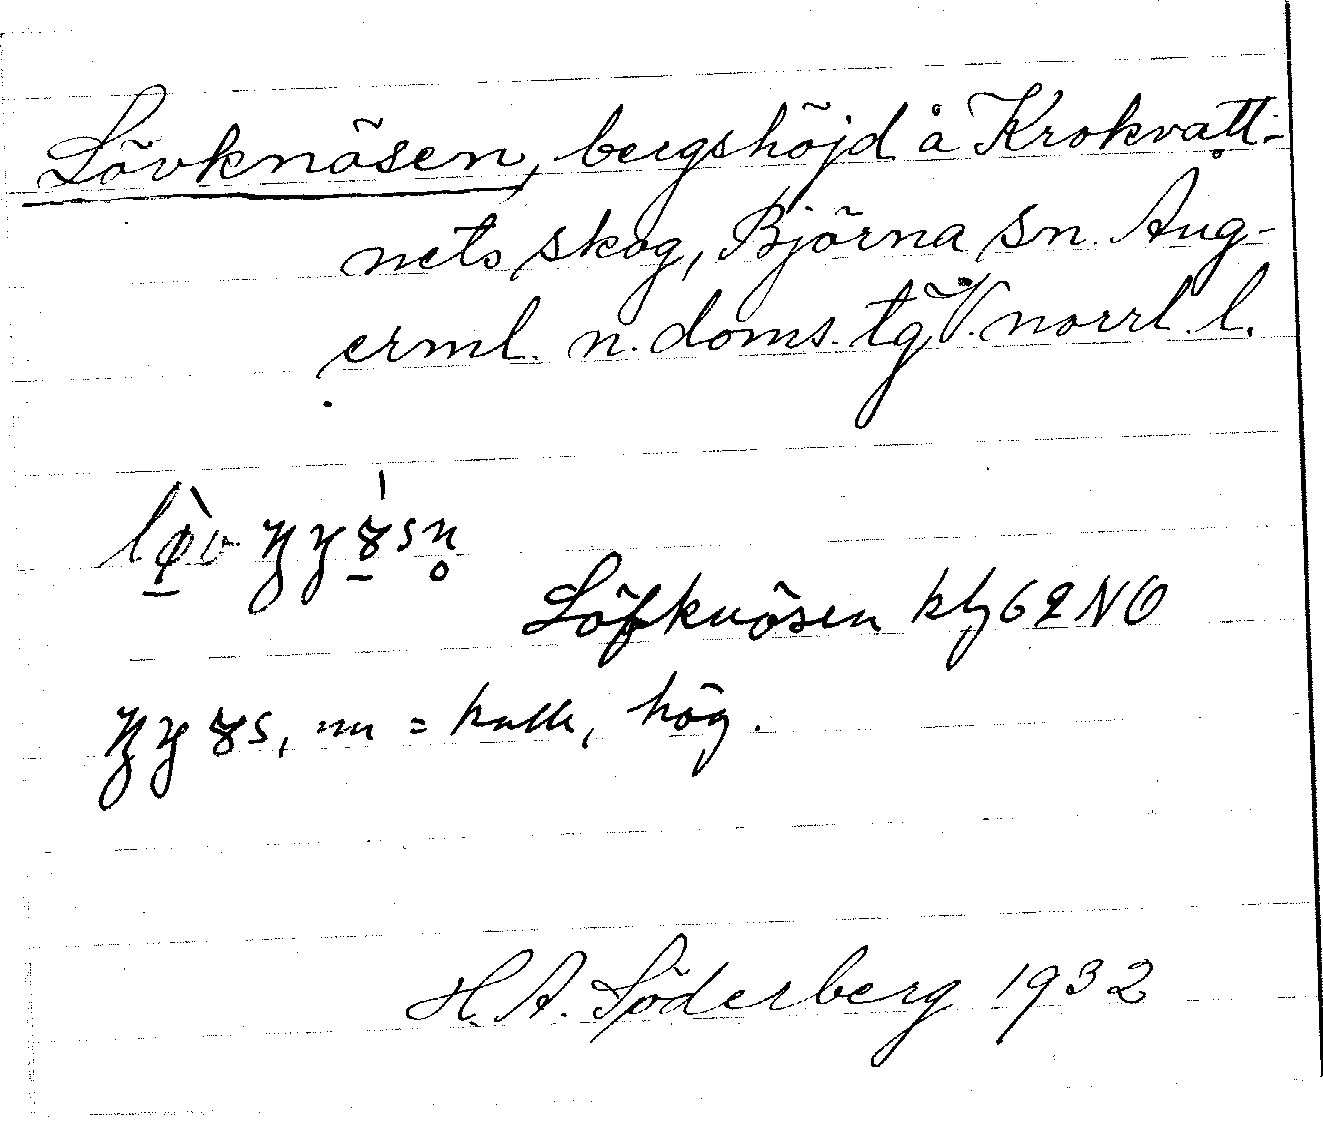 Lövknösen, bergshöjd å Krokvatt-
nets skog, Björna sn. Ång-
erml. n. doms. tg V. norrl. l.
Löfknösen kbl 62 NO
= kulle, hög.
H. A. Söderberg 1932